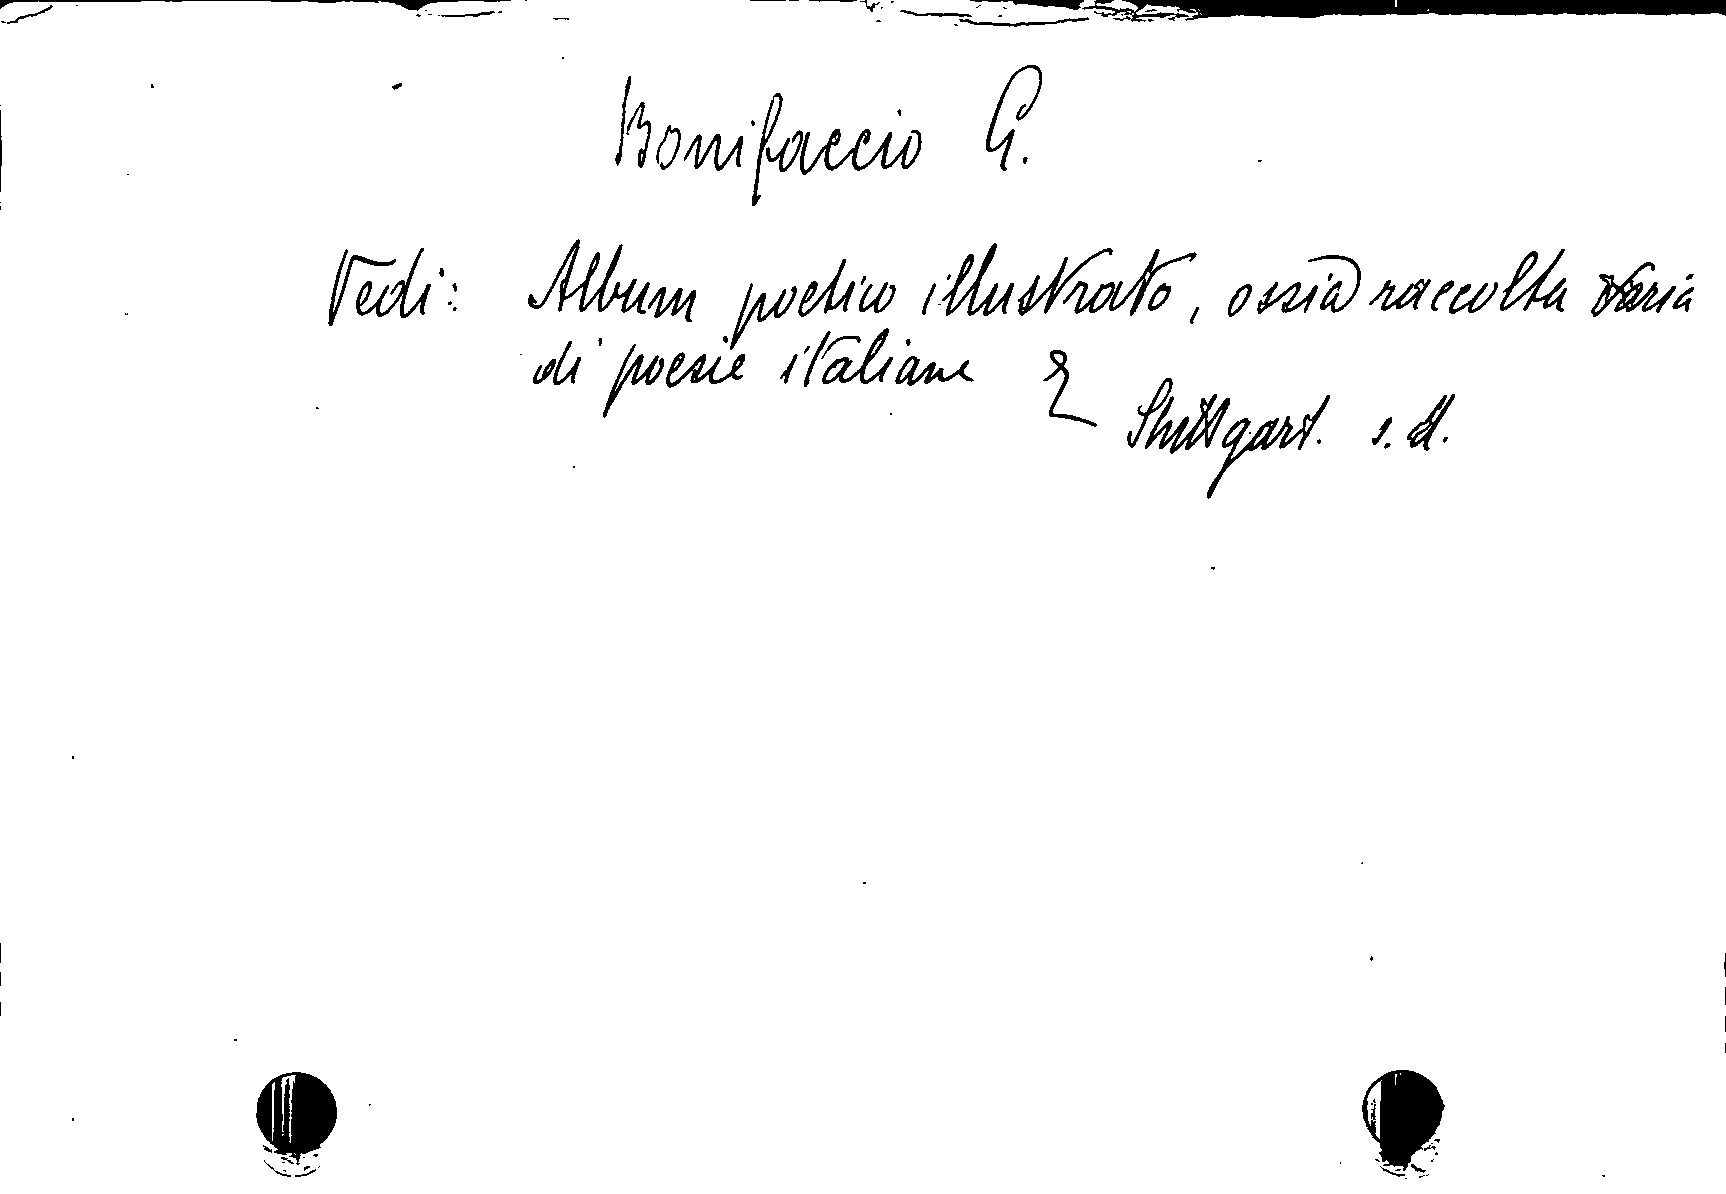 Bonifaccio G.
Vedi: Album poetico illustrato, ossia raccolta varia
di poesie italiane &
Stuttgart. s. d.